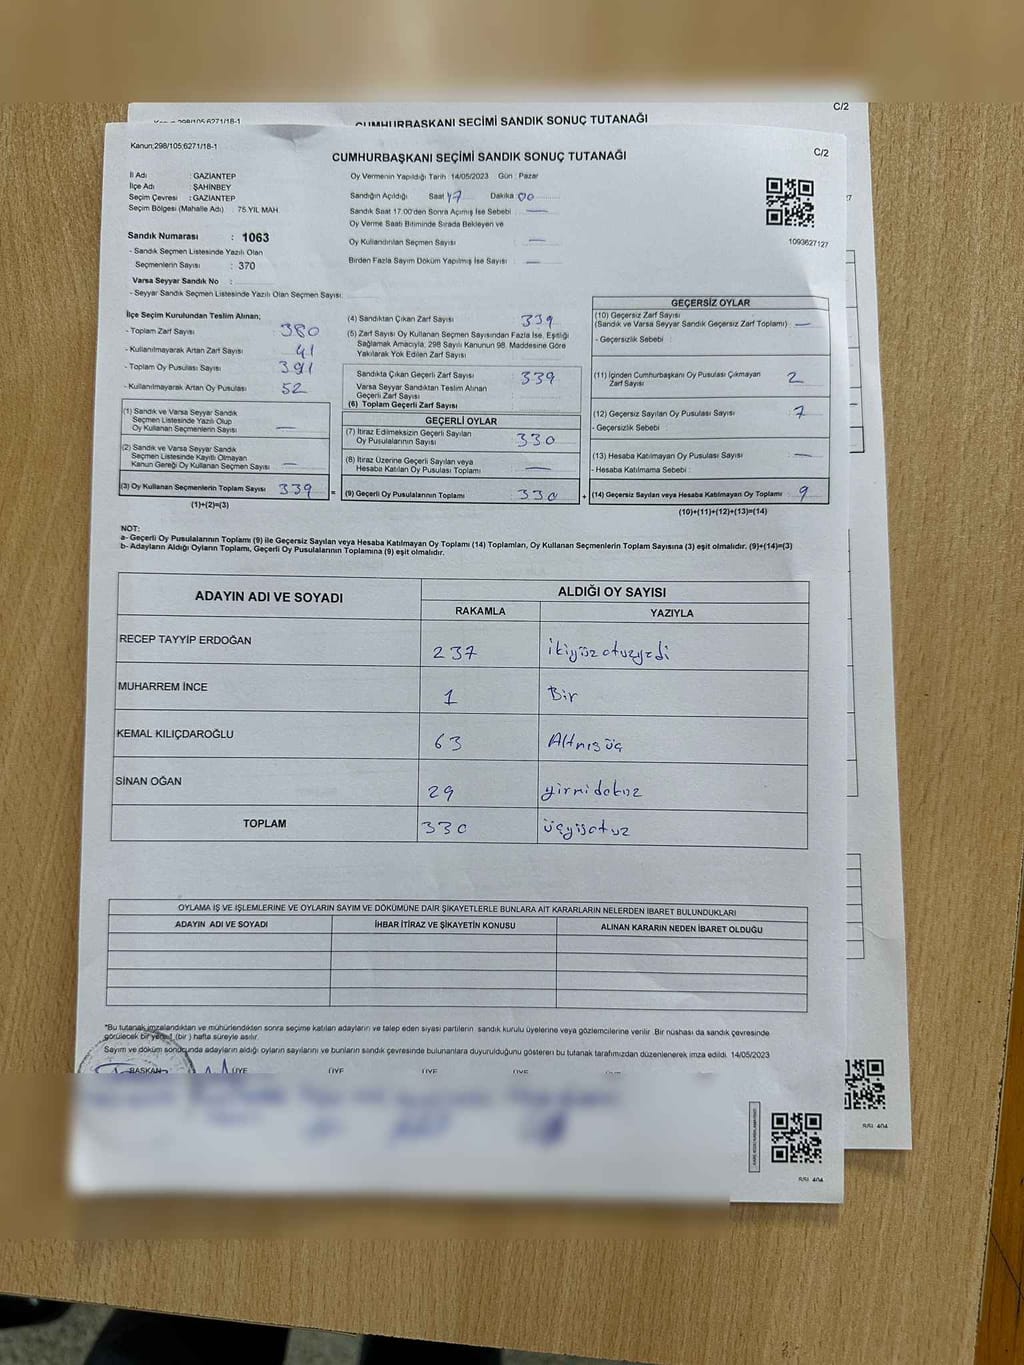 C/2
CUMHURBAŞKANI SEÇİMİ SANDIK SONUÇ TUTANAĞI
Kanun;298/105;6271/18-1
C/2
CUMHURBAŞKANI SEÇİMİ SANDIK SONUÇ TUTANAĞI
İl Adı : GAZİANTEP
İlçe Adı : ŞAHİNBEY
Seçim Çevresi : GAZİANTEP
Seçim Bölgesi (Mahalle Adı) : 75.YIL MAH.
Sandık Numarası : 1063
- Sandık Seçmen Listesinde Yazılı Olan
Seçmenlerin Sayısı : 370
Varsa Seyyar Sandık No :
- Seyyar Sandık Seçmen Listesinde Yazılı Olan Seçmen Sayısı:
Oy Vermenin Yapıldığı Tarih 14/05/2023 Gün : Pazar
Sandığın Açıldığı Saat 17 Dakika 00
Sandık Saat 17:00'den Sonra Açılmış İse Sebebi : —
Oy Verme Saati Bitiminde Sırada Bekleyen ve
Oy Kullandırılan Seçmen Sayısı : —
Birden Fazla Sayım Döküm Yapılmış İse Sayısı : —
1093627127
İlçe Seçim Kurulundan Teslim Alınan;
- Toplam Zarf Sayısı : 380
- Kullanılmayarak Artan Zarf Sayısı : 41
- Toplam Oy Pusulası Sayısı : 391
- Kullanılmayarak Artan Oy Pusulası : 52
(1) Sandık ve Varsa Seyyar Sandık
Seçmen Listesinde Yazılı Olup
Oy Kullanan Seçmenlerin Sayısı : —
(2) Sandık ve Varsa Seyyar Sandık
Seçmen Listesinde Kayıtlı Olmayan
Kanun Gereği Oy Kullanan Seçmen Sayısı : —
(3) Oy Kullanan Seçmenlerin Toplam Sayısı : 339
(1)+(2)=(3)
=
(4) Sandıktan Çıkan Zarf Sayısı : 339
(5) Zarf Sayısı Oy Kullanan Seçmen Sayısından Fazla İse, Eşitliği
Sağlamak Amacıyla, 298 Sayılı Kanunun 98. Maddesine Göre
Yakılarak Yok Edilen Zarf Sayısı
Sandıkta Çıkan Geçerli Zarf Sayısı : 339
Varsa Seyyar Sandıktan Teslim Alınan
Geçerli Zarf Sayısı :
(6) Toplam Geçerli Zarf Sayısı :
GEÇERLİ OYLAR
(7) İtiraz Edilmeksizin Geçerli Sayılan
Oy Pusulalarının Sayısı : 330
(8) İtiraz Üzerine Geçerli Sayılan veya
Hesaba Katılan Oy Pusulası Toplamı : —
(9) Geçerli Oy Pusulalarının Toplamı : 330
+
GEÇERSİZ OYLAR
(10) Geçersiz Zarf Sayısı
(Sandık ve Varsa Seyyar Sandık Geçersiz Zarf Toplamı) : —
- Geçersizlik Sebebi :
(11) İçinden Cumhurbaşkanı Oy Pusulası Çıkmayan
Zarf Sayısı : 2
(12) Geçersiz Sayılan Oy Pusulası Sayısı : 7
- Geçersizlik Sebebi :
(13) Hesaba Katılmayan Oy Pusulası Sayısı : —
- Hesaba Katılmama Sebebi :
(14) Geçersiz Sayılan veya Hesaba Katılmayan Oy Toplamı : 9
(10)+(11)+(12)+(13)=(14)
NOT:
a- Geçerli Oy Pusulalarının Toplamı (9) ile Geçersiz Sayılan veya Hesaba Katılmayan Oy Toplamı (14) Toplamları, Oy Kullanan Seçmenlerin Toplam Sayısına (3) eşit olmalıdır. (9)+(14)=(3)
b- Adayların Aldığı Oyların Toplamı, Geçerli Oy Pusulalarının Toplamına (9) eşit olmalıdır.
ADAYIN ADI VE SOYADI
ALDIĞI OY SAYISI
RAKAMLA YAZIYLA
RECEP TAYYİP ERDOĞAN 237 ikiyüzotuzyedi
MUHARREM İNCE 1 Bir
KEMAL KILIÇDAROĞLU 63 Altmışüç
SİNAN OĞAN 29 yirmidokuz
TOPLAM 330 üçyüzotuz
OYLAMA İŞ VE İŞLEMLERİNE VE OYLARIN SAYIM VE DÖKÜMÜNE DAİR ŞİKAYETLERLE BUNLARA AİT KARARLARIN NELERDEN İBARET BULUNDUKLARI
ADAYIN ADI VE SOYADI İHBAR İTİRAZ VE ŞİKAYETİN KONUSU ALINAN KARARIN NEDEN İBARET OLDUĞU
*Bu tutanak imzalandıktan ve mühürlendikten sonra seçime katılan adayların ve talep eden siyasi partilerin sandık kurulu üyelerine veya gözlemcilerine verilir. Bir nüshası da sandık çevresinde
görülecek bir yere 1 (bir ) hafta süreyle asılır.
Sayım ve döküm sonucunda adayların aldığı oyların sayılarını ve bunların sandık çevresinde bulunanlara duyurulduğunu gösteren bu tutanak tarafımızdan düzenlenerek imza edildi. 14/05/2023
BAŞKAN ÜYE ÜYE ÜYE ÜYE